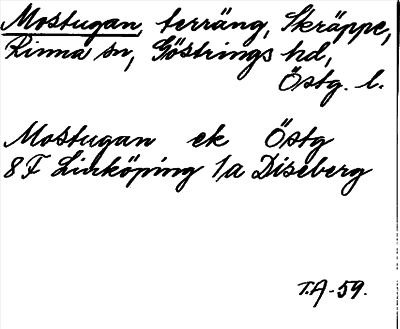 Mostugan, terräng, Skräppe,
Rinna sn, Göstrings hd,
Östg. l.
Mostugan ek Östg
8F Linköping 1a Diseberg
T.A-59.